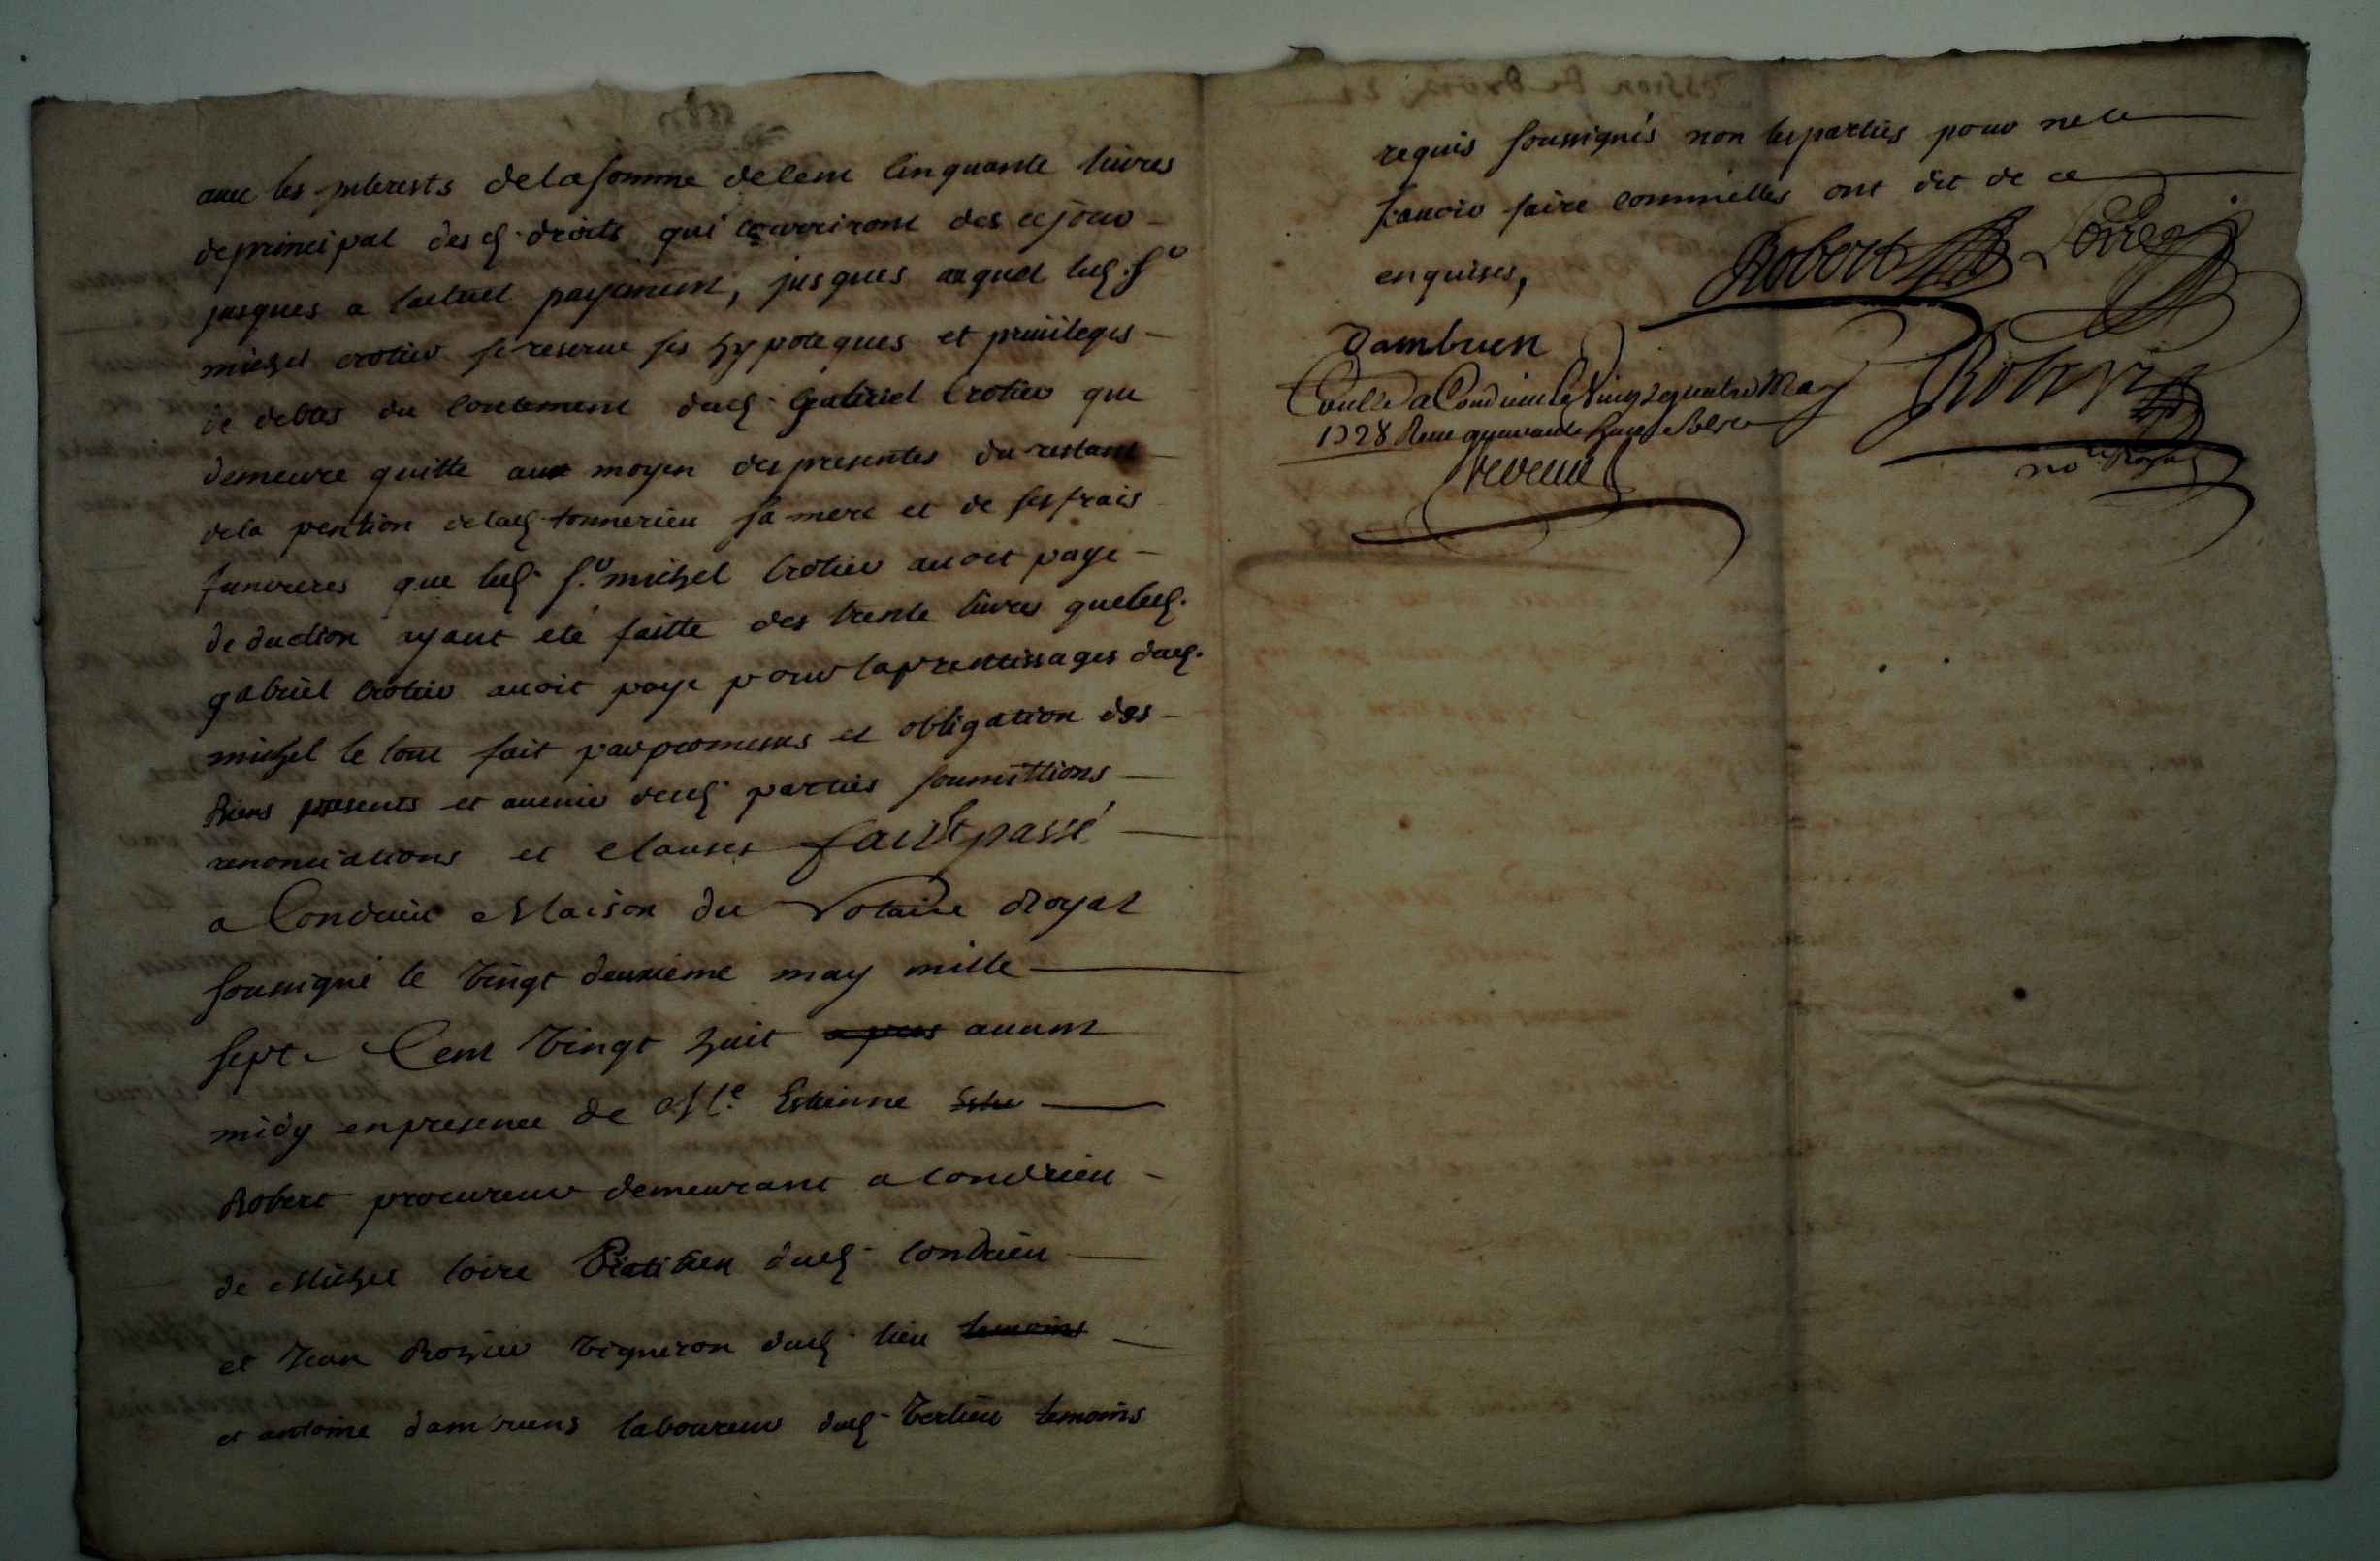 avec les jnterests delasomme decent cinquante livres
deprincipal desd. droits qui courriront des cejour
jusques a lactuel payement, jusques auquel led. Sr
michel crotier se reserve ses hypoteques et privileges
de debtes du contement dud. Gabriel Crotier que
demeure quitte aux moyen des presentes du restant
dela pention delad. tonnerieu sa mere et de ses frais
funereres que led. Sr michel Crotier avoit paye
deduction ayant eté faitte des trente livres queled.
gabriel Crotier avoit paye pour laprentissages dud.
michel le tout fait par promesses et obligation des
Biens presents et avenir desd. parties soumittions
renonciations et clauses fait et passé
a Condrieu Maison du Notaire Royal
soussigné le vingt deuxieme may mille
sept Cent vingt huit apres avant
midy enpresence de Me. Estienne
Robert procureur demeurant a Condrieu
de Michel loire Praticien dud. Condrieu
et Jean Rozier vigneron dud. lieu temoins
et antoine dambruens laboureur dud. Verlieu temoins
requis soussignés non lesparties pour nele
scavoir faire comme elles ont dit de ce
enquises,
Robert Loire
Dambuen
Conllé a Condrieu le Vingt quatre May
1728 Receu quarante huit sols
Robert
no.re Royal